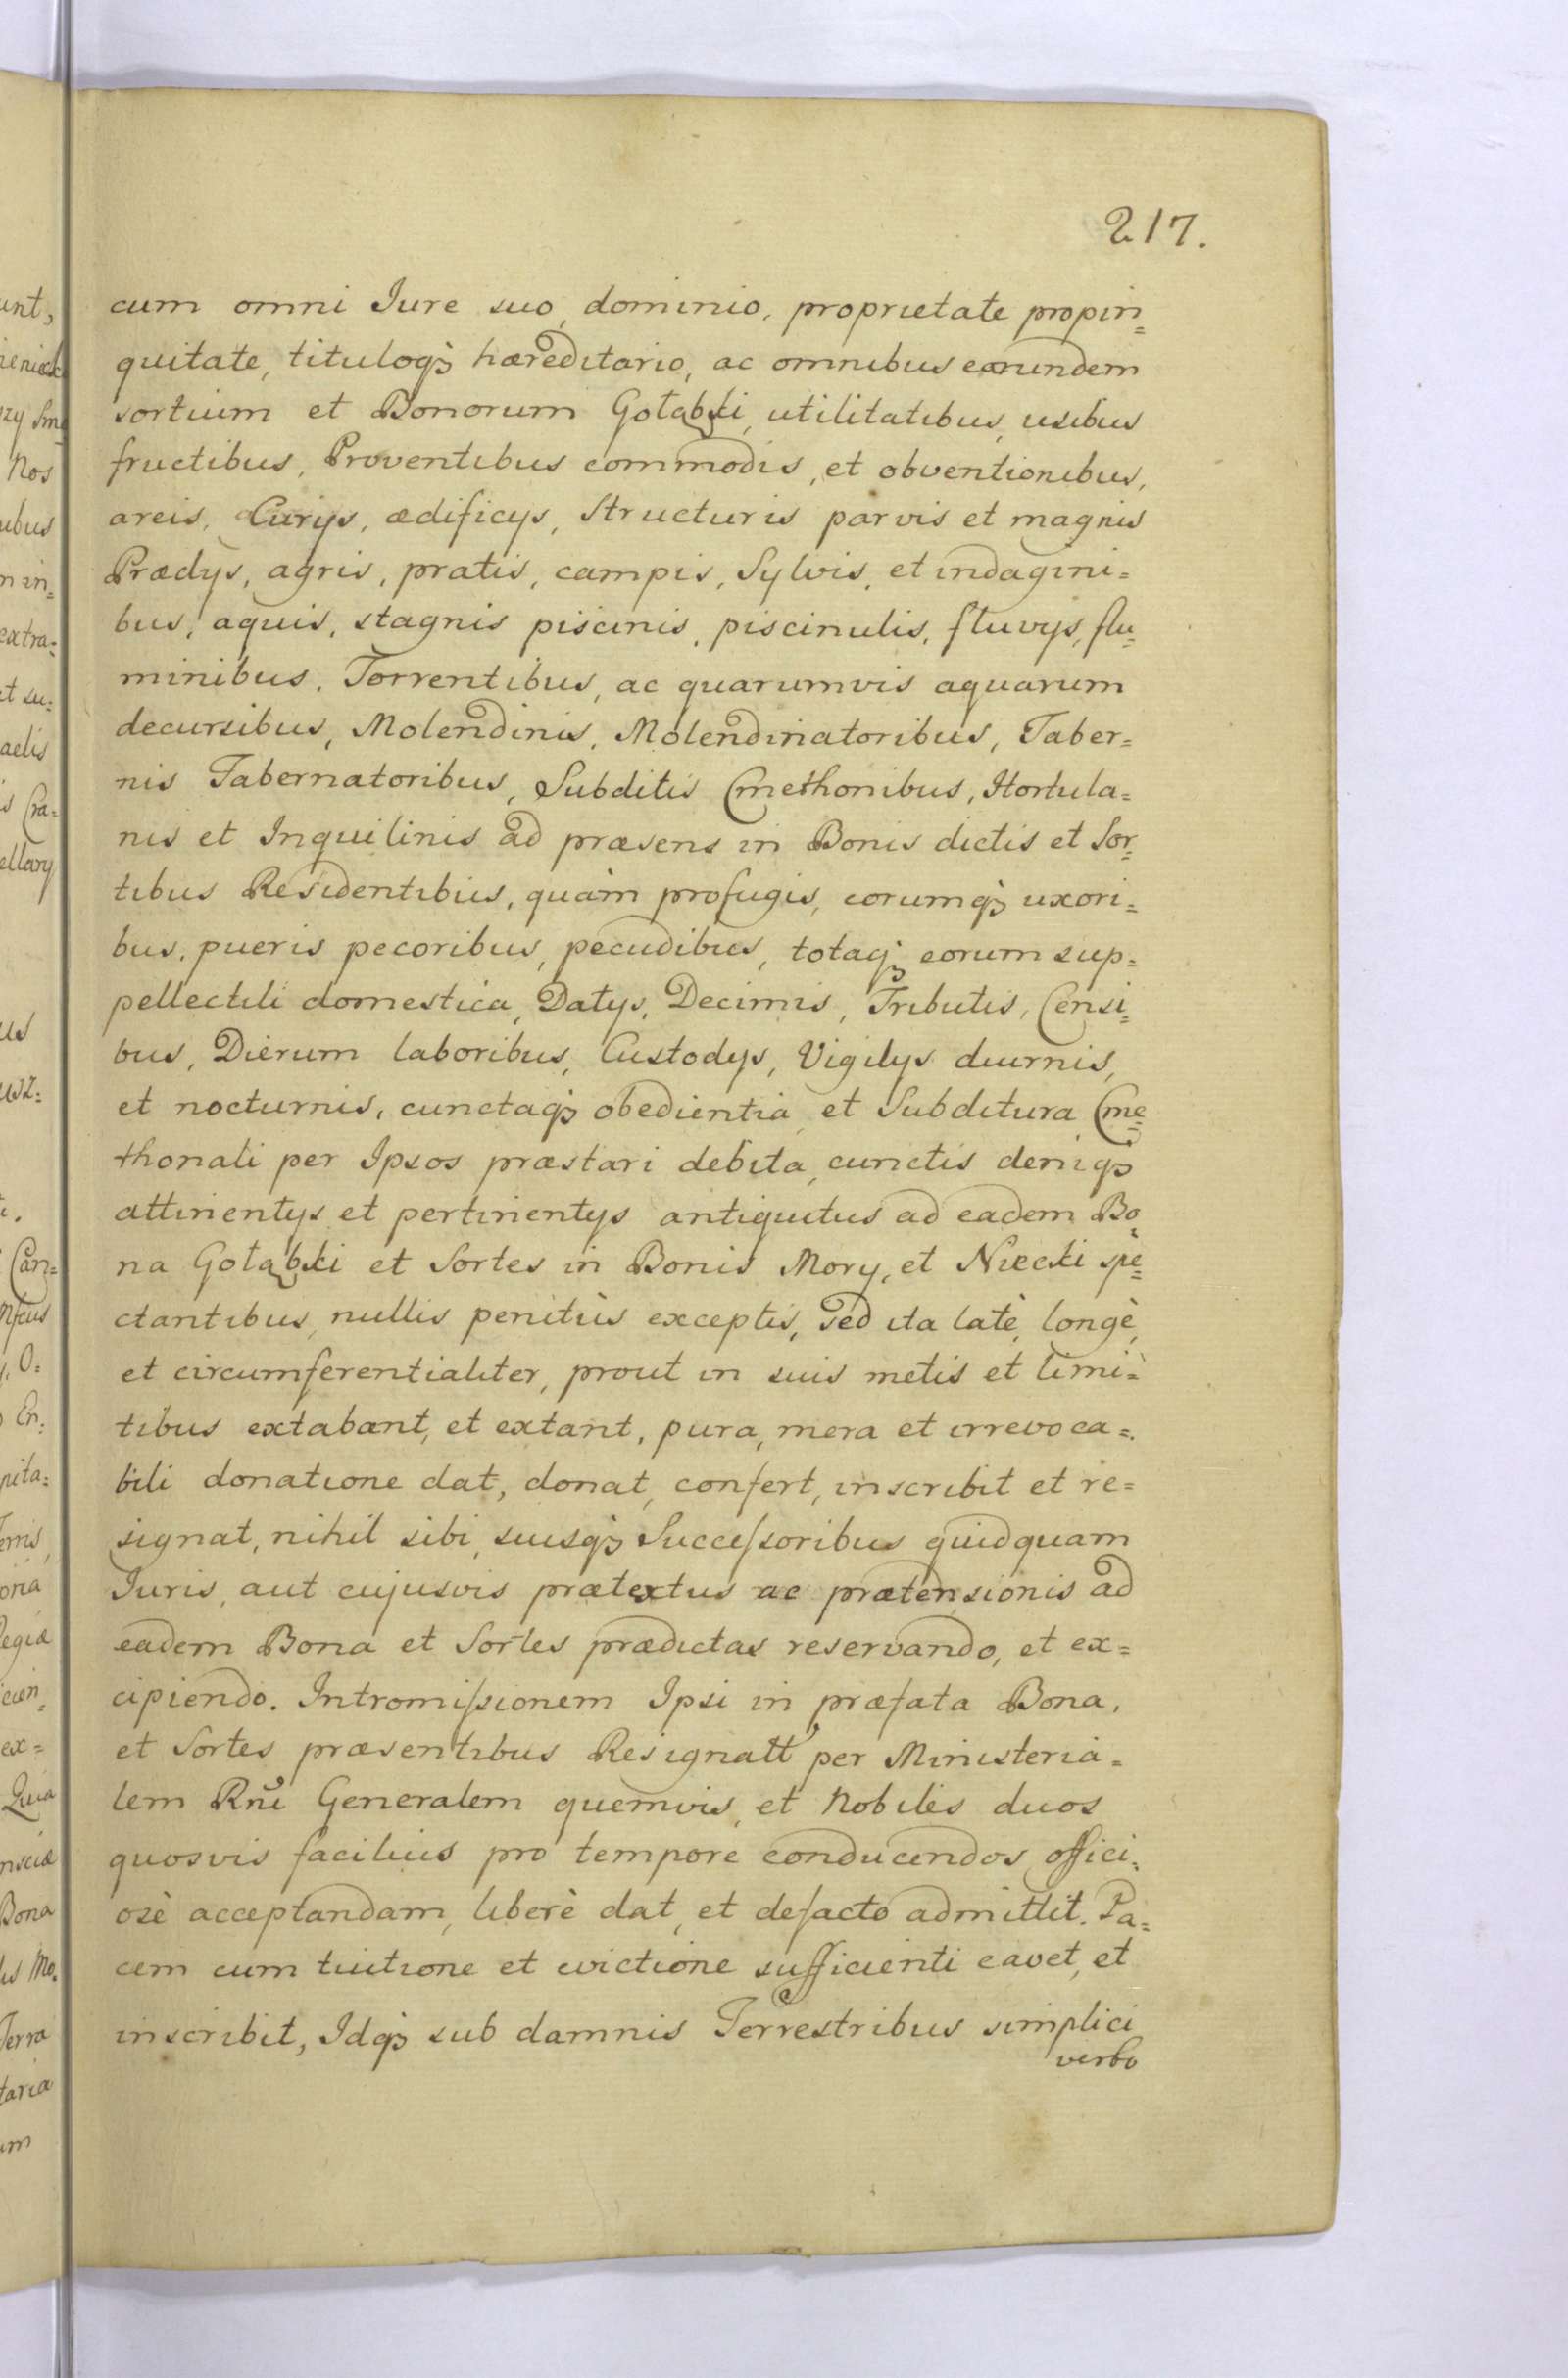 217.
cum omni Iure suo, dominio, proprietate propin=
quitate, tituloqȝ hæreditario, ac omnibus earundem
sortium et Bonorum Gołąbki, utilitatibus, usibus
fructibus, Proventibus commodis, et obventionibus,
areis, Curijs, ædificijs, Structuris parvis et magnis
Prædijs, agris, pratis, campis, Sylvis, et indagini=
bus, aquis, stagnis piscinis, piscinulis, fluvijs, flu=
minibus, Torrentibus, ac quarumvis aquarum
decursibus, Molendinis, Molendinatoribus, Taber=
nis Tabernatoribus, Subditis Cmethonibus, Hortula=
nis et Inquilinis ad præsens in Bonis dictis et Sor=
tibus Residentibus, quàm profugis, eorumqȝ uxori=
bus, pueris pecoribus, pecudibus, totaqȝ eorum sup=
pellectili domestica, Datijs, Decimis, Tributis, Censi=
bus, Dierum laboribus, Custodijs, Vigilijs diurnis,
et nocturnis, cunctaqȝ obedientia, et Subditura Cme=
thonali per Ipsos præstari debita, cunctis deniqȝ
attinentijs et pertinentijs antiquitus ad eadem Bo=
na Gołąbki et Sortes in Bonis Mory, et Niecki spe=
ctantibus, nullis penitùs exceptis, sed ita latè, longè,
et circumferentialiter, prout in suis metis et limi=
tibus extabant, et extant, pura, mera et irrevoca=
bili donatione dat, donat, confert, inscribit et re=
signat, nihil sibi, suisqȝ Successoribus quidquam
Iuris, aut cujusvis prætextus ac prætensionis ad
eadem Bona et Sortes prædictas reservando, et ex=
cipiendo. Intromissionem Ipsi in præfata Bona,
et Sortes præsentibus Resignatt per Ministeria=
lem Rñi Generalem quemvis, et Nobiles duos
quosvis faciliùs pro tempore conducendos offici=
osè acceptandam, liberè dat, et defacto admittit. Pa=
cem cum tuitione et evictione sufficienti cavet, et
inscribit, Idqȝ sub damnis Terrestribus simplici
verbo